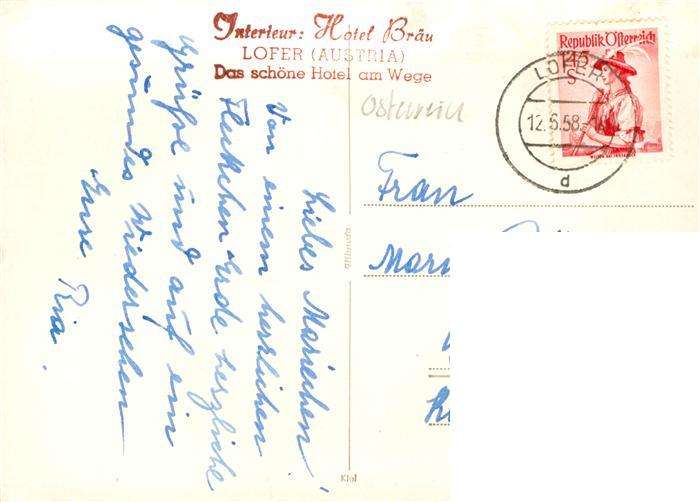 Interieur: Hotel Bräu
LOFER (AUSTRIA)
Das schöne Hotel am Wege
Liebes Mariechen!
Von einem herrlichen
Fleckchen Erde herzliche
Grüße und auf ein
gesundes Wiedersehen
Eure Ria.
Republik Österreich
LOFER
12.6.58
d
Frau
Kiel